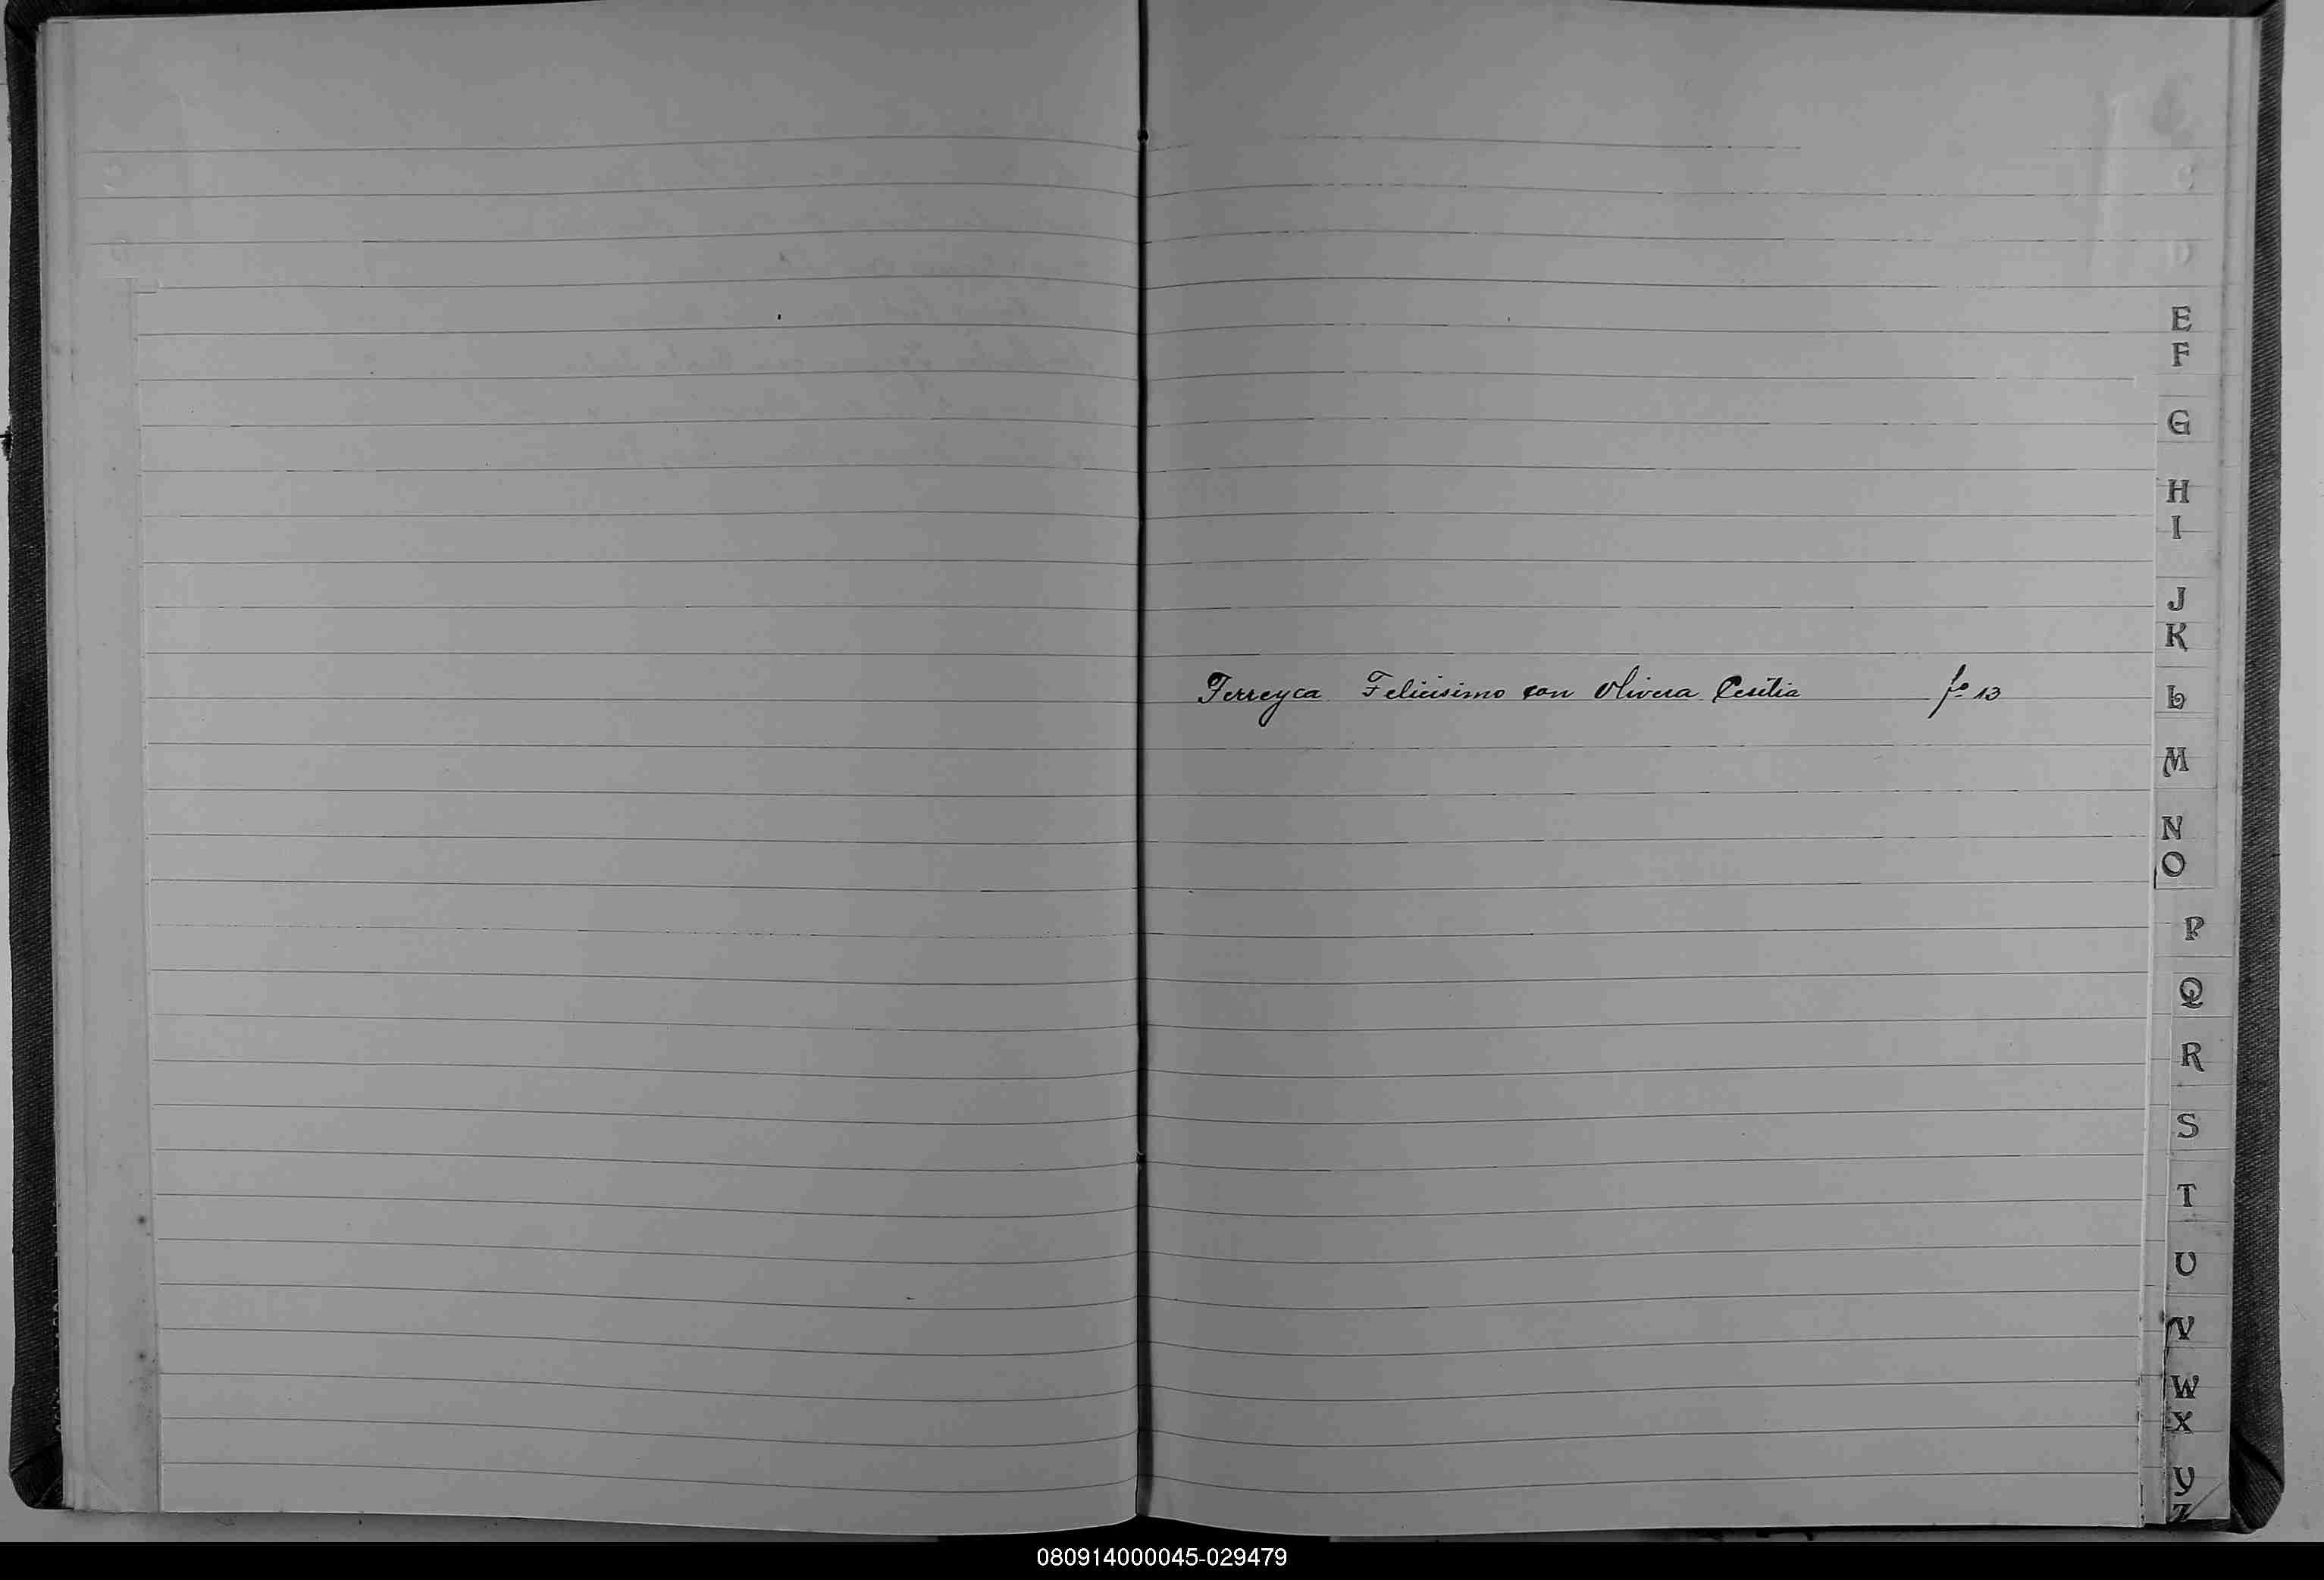 E
F
G
H
I
J
K
Ferreyra Felicisimo con Olivera Cecilia fº 13
L
M
N
O
P
Q
R
S
T
U
V
W
X
Y
Z
080914000045-029479